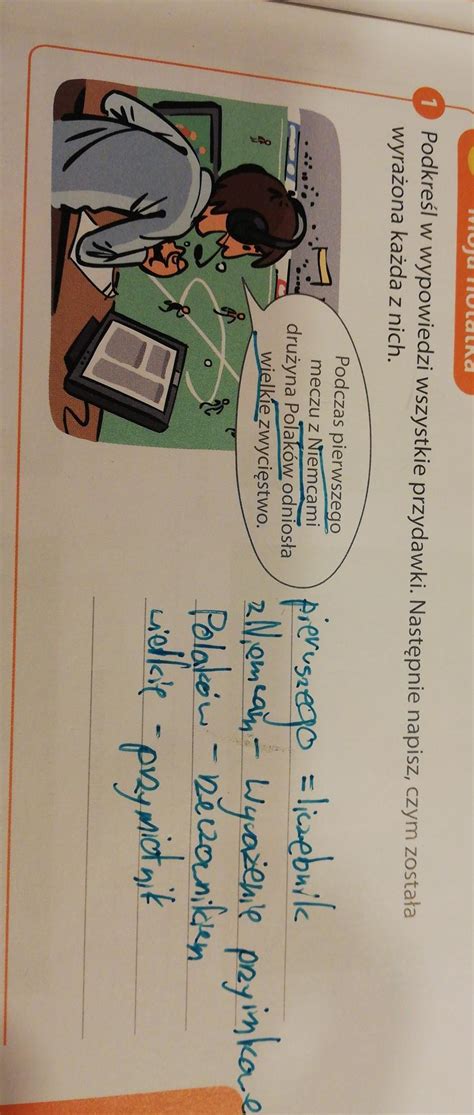 Moja notatka
1 Podkreśl w wypowiedzi wszystkie przydawki. Następnie napisz, czym została
wyrażona każda z nich.
Podczas pierwszego
meczu z Niemcami
drużyna Polaków odniosła
wielkie zwycięstwo.
pierwszego = liczebnik
z Niemcami – Wyrażenie przyimkowe
Polaków – rzeczownikiem
wielkie – przymiotnik